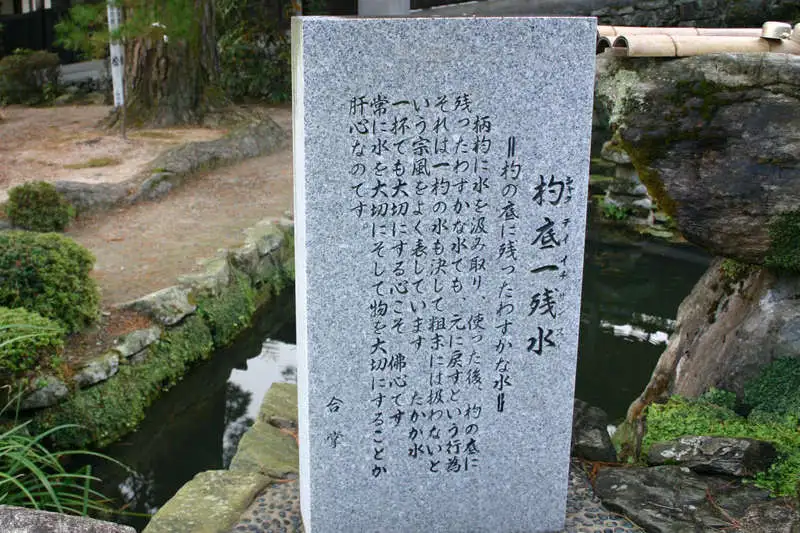 杓底一残水
シャク テイ イチ ザン スイ
＝杓の底に残ったわずかな水＝
柄杓に水を汲み取り、使った後、杓の底に
残ったわずかな水でも、元に戻すという行為
それは一杓の水も決して粗末には扱わないと
いう宗風をよく表しています たかが水
一杯でも大切にする心こそ 佛心です
常に水を大切にそして物を大切にすることが
肝心なのです。
合掌